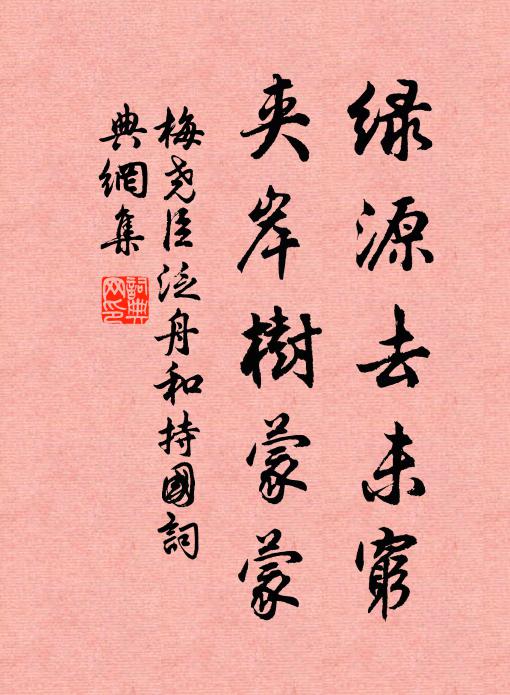 绿源去未窮
夾岸樹蒙蒙
梅堯臣泛舟和持國詞
典網集
詞典
网印